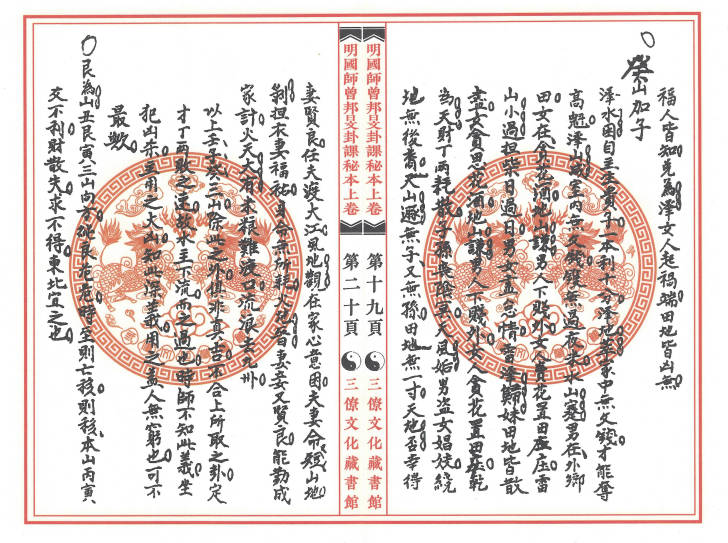 福人皆知兌為澤女人起禍端田地皆凶無
癸山加子
澤水困自主生貴子一本利十分澤地萃家中無欠錢才能奪
高魁澤山咸室內無欠錢錢無過夜未水山蹇男在外鄉
田女在貪花酒地山謙男人下賤外女人貴花置田庄庄雷
山小過担柴日過日男女孟急情雷澤歸妹田地皆散
盡女貪男花酒地山謙男人下賤外女人貪花置田庄乾
為天財丁兩耗散子孫長陰冥天風姤男盜女娼妓繞
地無後裔天山遯無子又無孫田地無一寸天地否幸得
明國師曾邦旻卦課秘本上卷
第十九頁
三僚文化藏書館
明國師曾邦旻卦課秘本上卷
第二十頁
三僚文化藏書館
妻賢良任夫渡大江風地觀在家心意困夫妻命短山地
剝担衣妻福祐自命無所祝火地晋妻妾又賢良能勤成
家計火天大有求根難渡口流浪走九州
以上壬子癸三山除此之外俱非真古不合上所取之卦定
才丁兩敗之運故水主下流崩之過也時師不知此義坐
犯凶朱主用之大凶知此深義用之益人無窮也可不
最歟
艮為山丑艮寅三山向不純良危危時至則亡移則移本山丙寅
爻不利財散失求不得東北宜之也